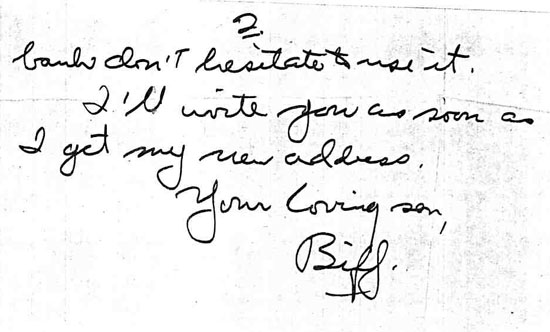 2.
bank don't hesitate to use it.
I'll write you as soon as
I get my new address.
Your loving son,
Biff.